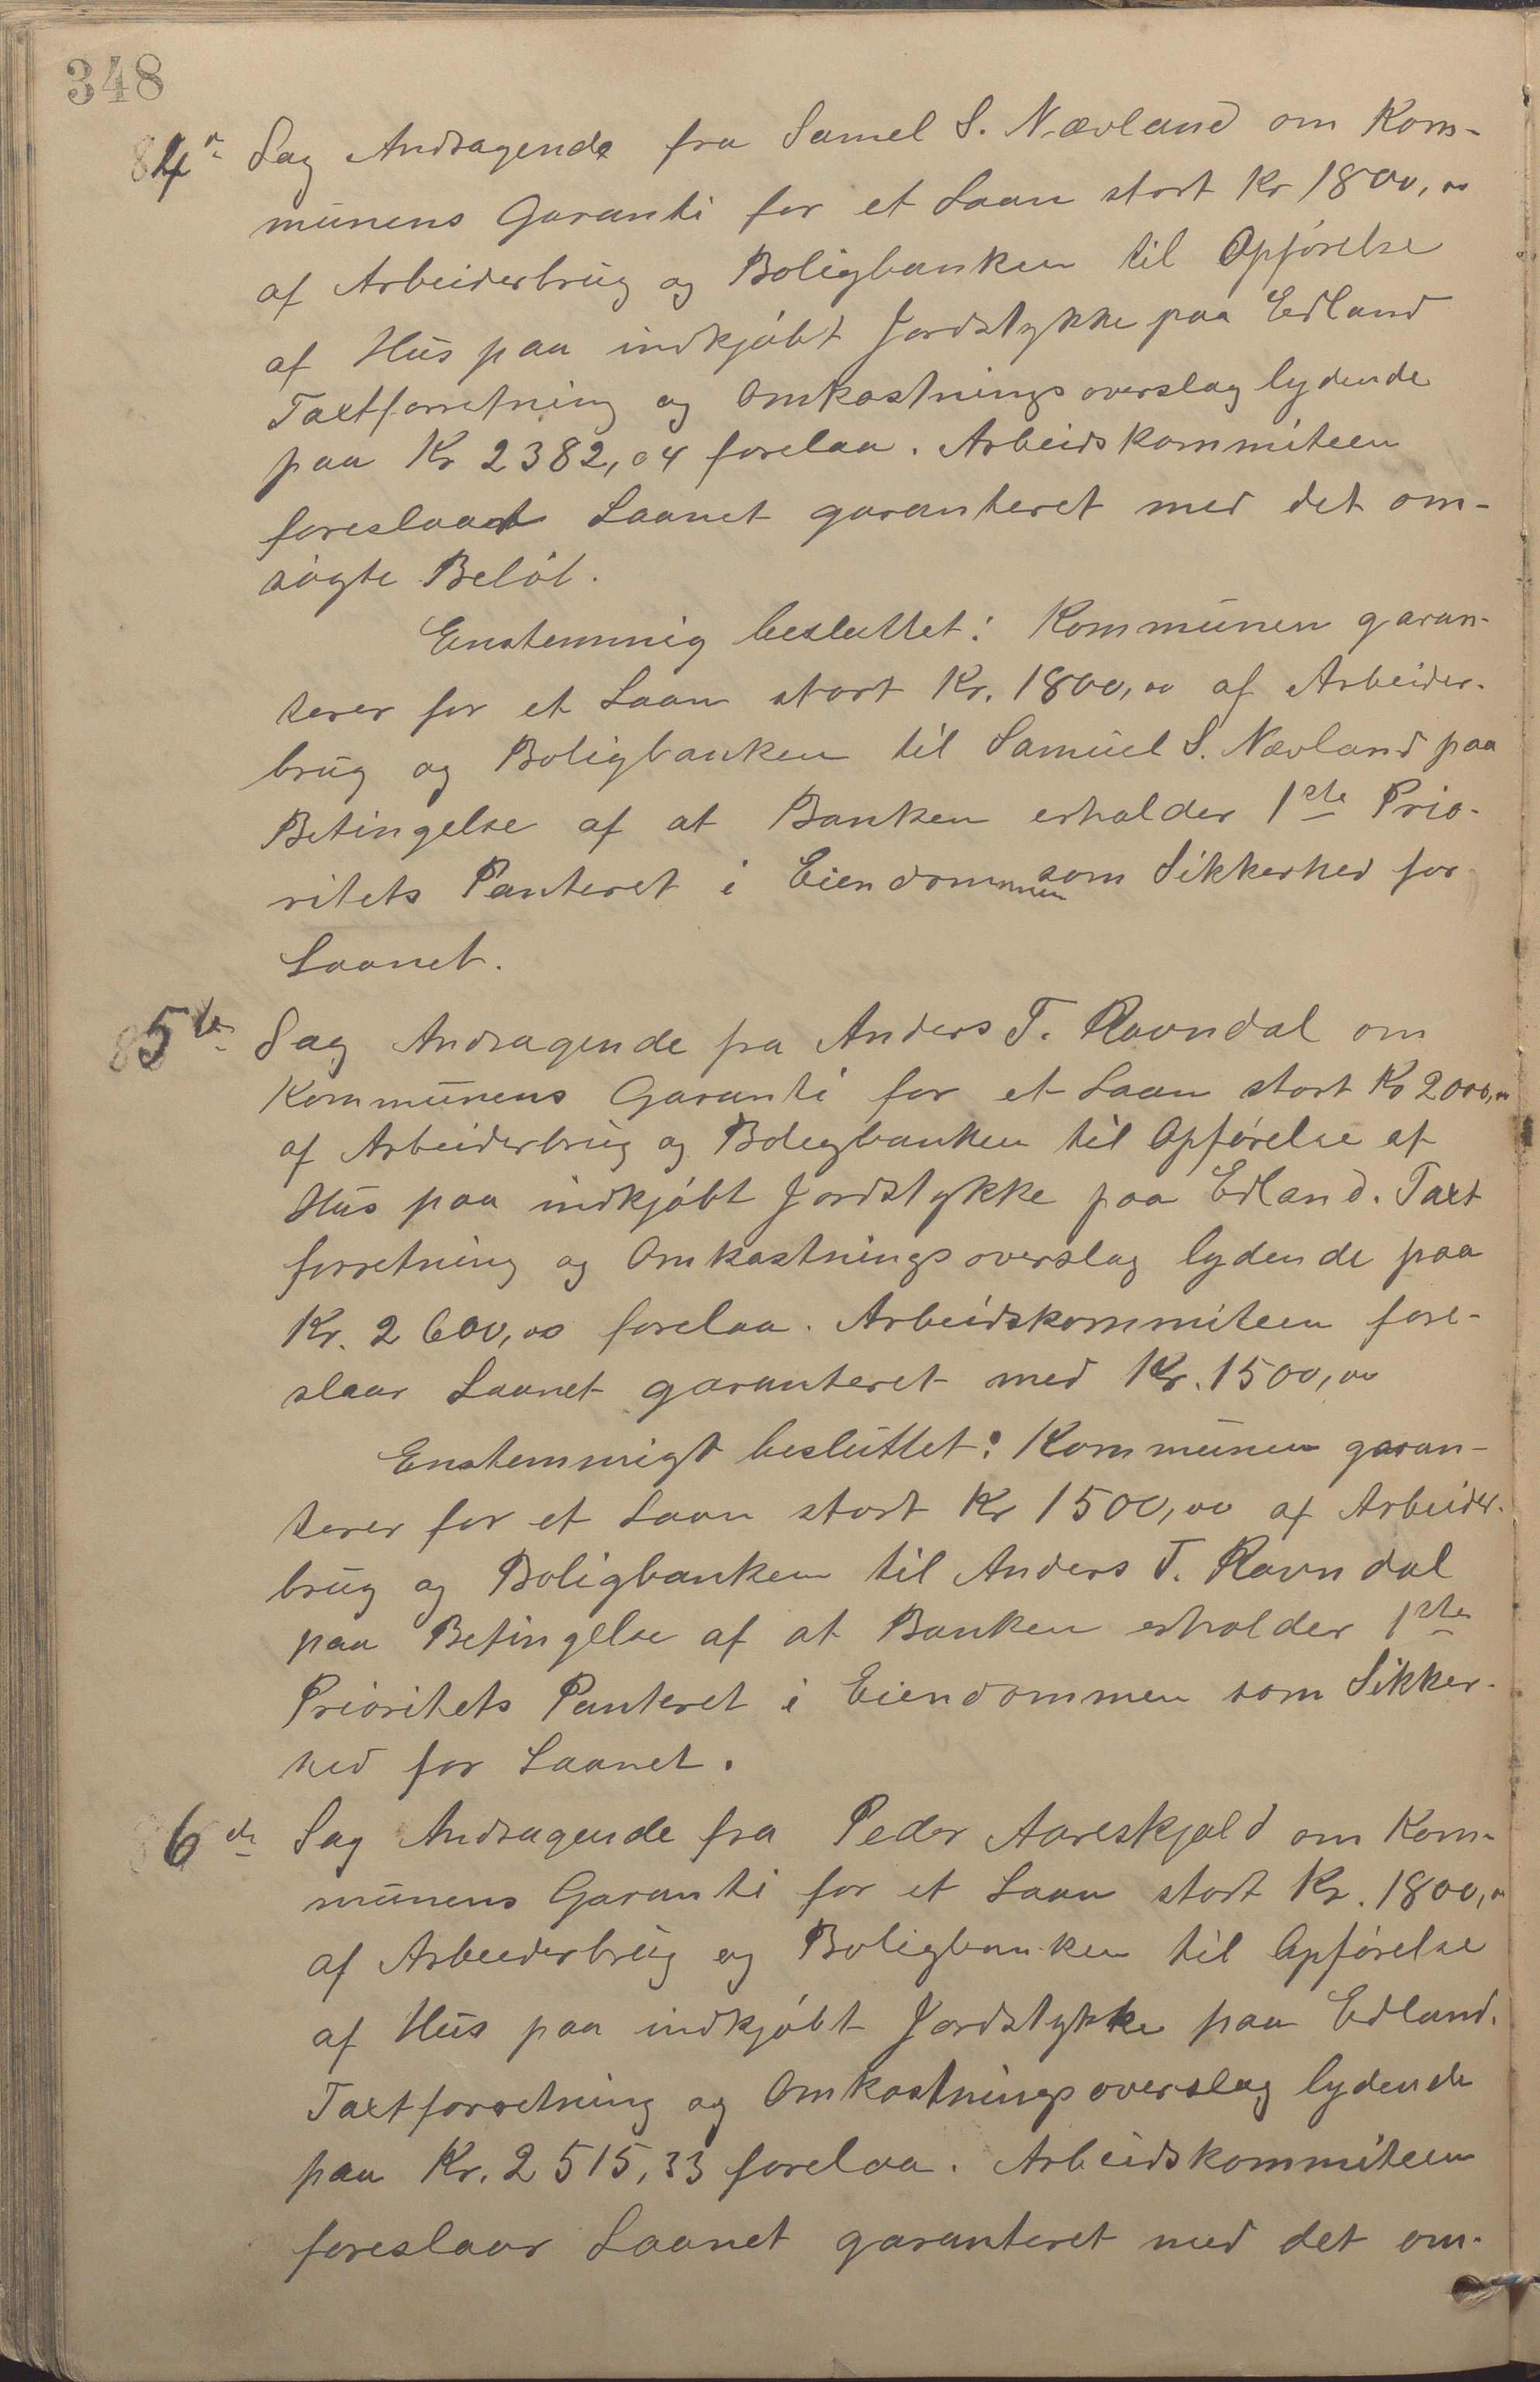 348
84de Sag Andragende fra Samel S. Nævland om Kom-
munens Garanti for et Laan stort Kr 1800,00
af Arbeiderbrug og Boligbanken til Opførelse
af Hus paa indkjøbt Jordstykke paa Edland
Taxtforretning og Omkostningsoverslag lydende
paa Kr 2382,04 forelaa. Arbeidskommiteen
foreslaar Laanet garanteret med det om-
søgte Beløb.
Enstemmig besluttet: Kommunen garan-
terer for et Laan stort Kr. 1800,00 af Arbeider-
brug og Boligbanken til Samuel S. Nævland paa
Betingelse af at Banken erholder 1ste Prio-
ritets Panteret i Eiendommen som Sikkerhed for
Laanet.
85te Sag Andragende fra Anders T. Ravndal om
Kommunens Garanti for et Laan stort Kr 2000,00
af Arbeiderbrug og Boligbanken til Opførelse af
Hus paa indkjøbt Jordstykke paa Edland. Taxt
forretning og Omkostningsoverslag lydende paa
Kr. 2600,00 forelaa. Arbeidskommiteen fore-
slaar Laanet garanteret med Kr. 1500,00
Enstemmigt besluttet: Kommunen garan-
terer for et Laan stort Kr 1500,00 af Arbeider-
brug og Boligbanken til Anders T. Ravndal
paa Betingelse af at Banken erholder 1ste
Prioritets Panteret i Eiendommen som Sikker-
hed for Laanet.
86de Sag Andragende fra Peder Aareskjold om Kom-
munens Garanti for et Laan stort Kr. 1800,00
af Arbeiderbrug og Boligbanken til Opførelse
af Hus paa indkjøbt Jordstykke paa Edland.
Taxtforretning og Omkostningsoverslag lydende
paa Kr. 2515,33 forelaa. Arbeidskommiteen
foreslaar Laanet garanteret med det om-